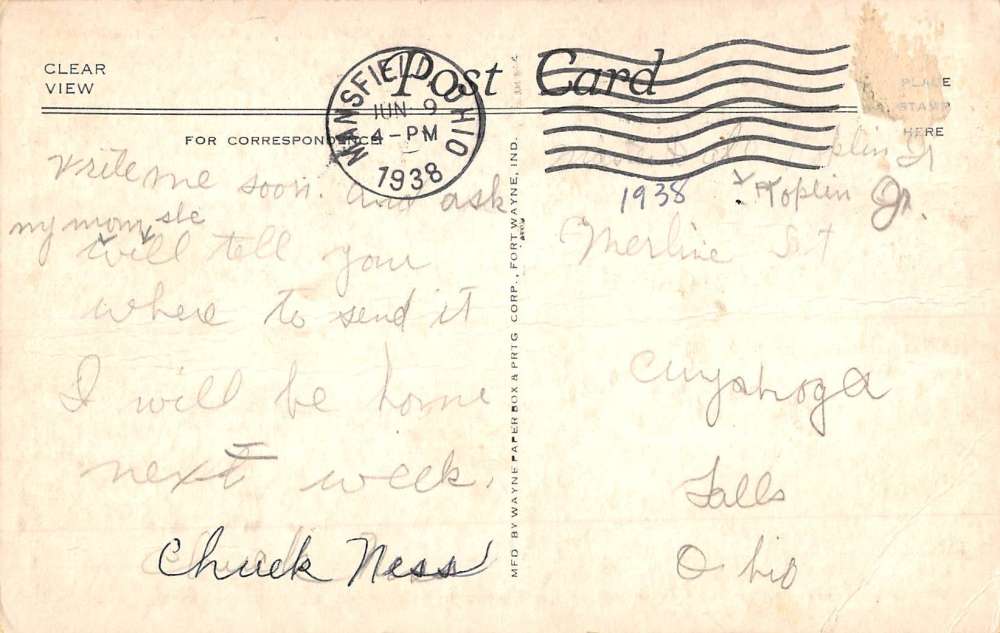 CLEAR
VIEW
Post Card
PLACE
STAMP
HERE
FOR CORRESPONDENCE
MANSFIELD OHIO
JUN 9
4-PM
1938
Write me soon. and ask
my mom she
will tell your
where to send it
I will be home
next week.
Chuck Ness
MFD BY WAYNE PAPER BOX & PRTG CORP., FORT WAYNE, IND.
Jr
1938
Koplin Jr.
Merline St
Cuyahoga
Falls
Ohio